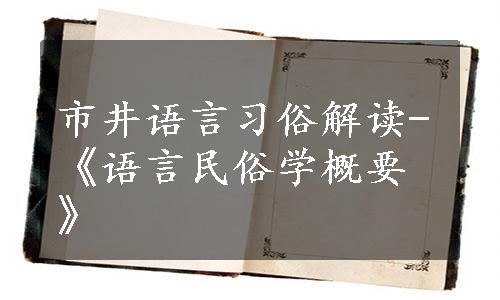 市井语言习俗解读-
《语言民俗学概要
》